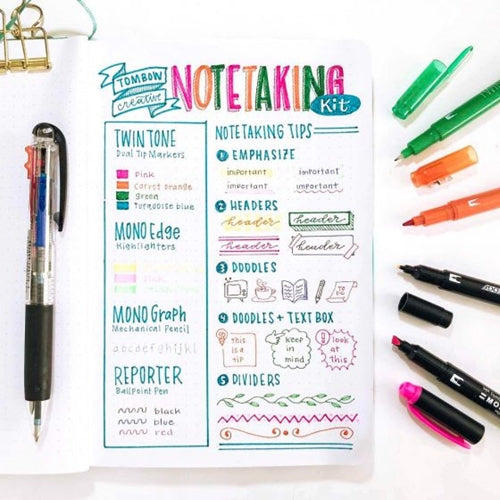 TOMBOW
creative
NOTETAKING
Kit
TWINTONE
Dual Tip Markers
pink
Carrot orange
green
Turquoise blue
MONO Edge
Highlighters
pink
MONO Graph
Mechanical Pencil
abcdefghijkl
REPORTER
Ballpoint Pen
black
blue
red
NOTETAKING TIPS
1 EMPHASIZE
important important
important important
2 HEADERS
header header
header header
3 DOODLES
TO DO
4 DOODLES + TEXT BOX
this is a tip
keep in mind
look at this
5 DIVIDERS